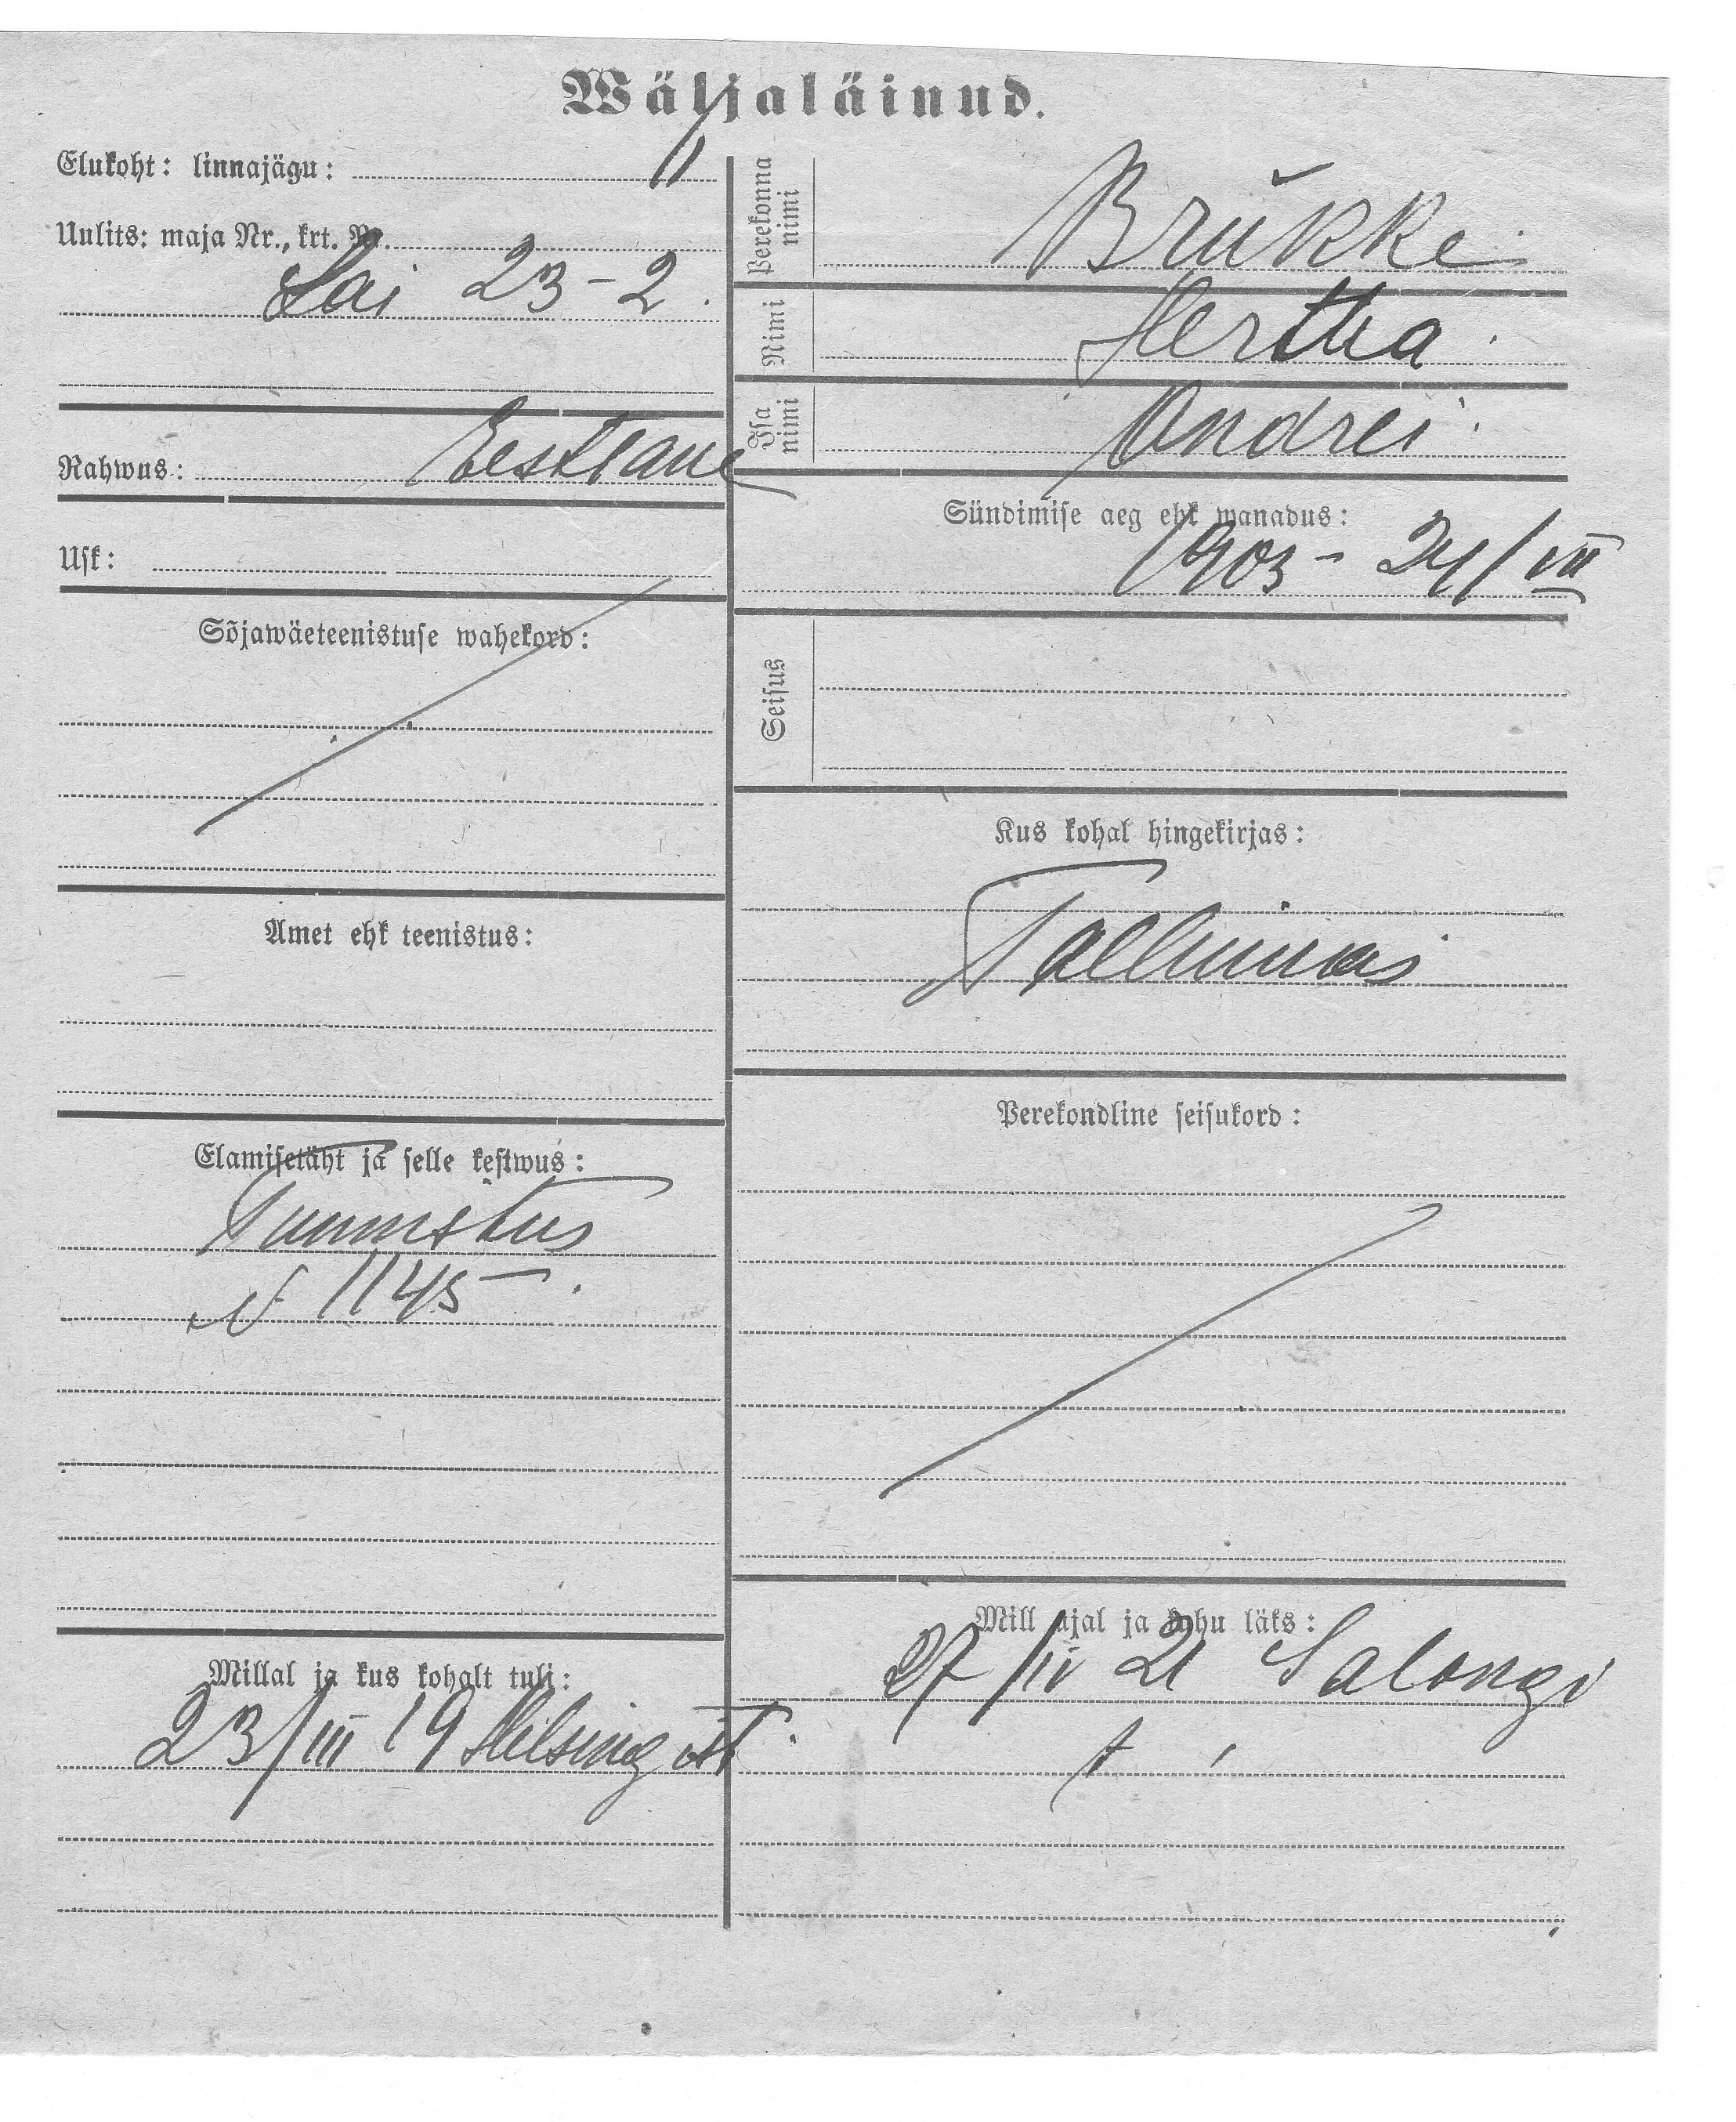 Wäljaläinud.
Elukoht: linnajägu: II
Uulits: maja Nr., krt. Nr.
Lai 23-2.
Rahwus: Eestlane
Usk:
Sõjawäeteenistuse wahekord:
Amet ehk teenistus:
Elamisetäht ja selle kestwus:
Tunnistus
N 1145.
Millal ja kus kohalt tuli:
23/III 19 Helsingist.
Perekonna nimi Brükke.
Nimi Hertha.
Isa nimi Andrei.
Sündimise aeg ehk wanadus:
1903 - 24/VII
Seisus
Kus kohal hingekirjas:
Tallinnas
Perekondline seisukord:
Mill ajal ja kuhu läks:
27/IV 21